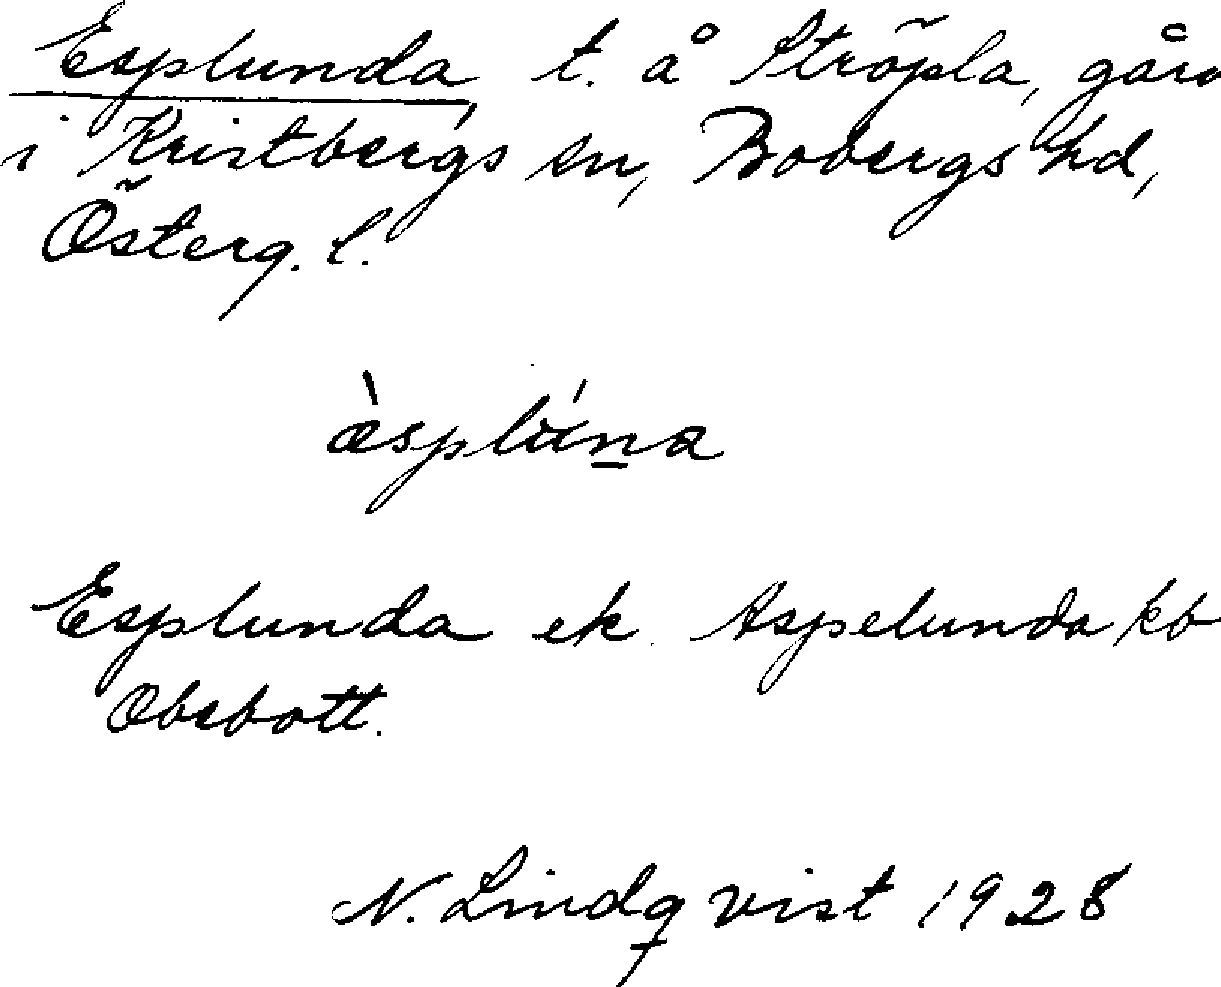 Esplunda, t. å Ströpla, gård
i Kristbergs sn, Bobergs hd,
Österg. l.
æ̀splúna
Esplunda ek. Aspelunda kb
Obebott.
N. Lindqvist 1928